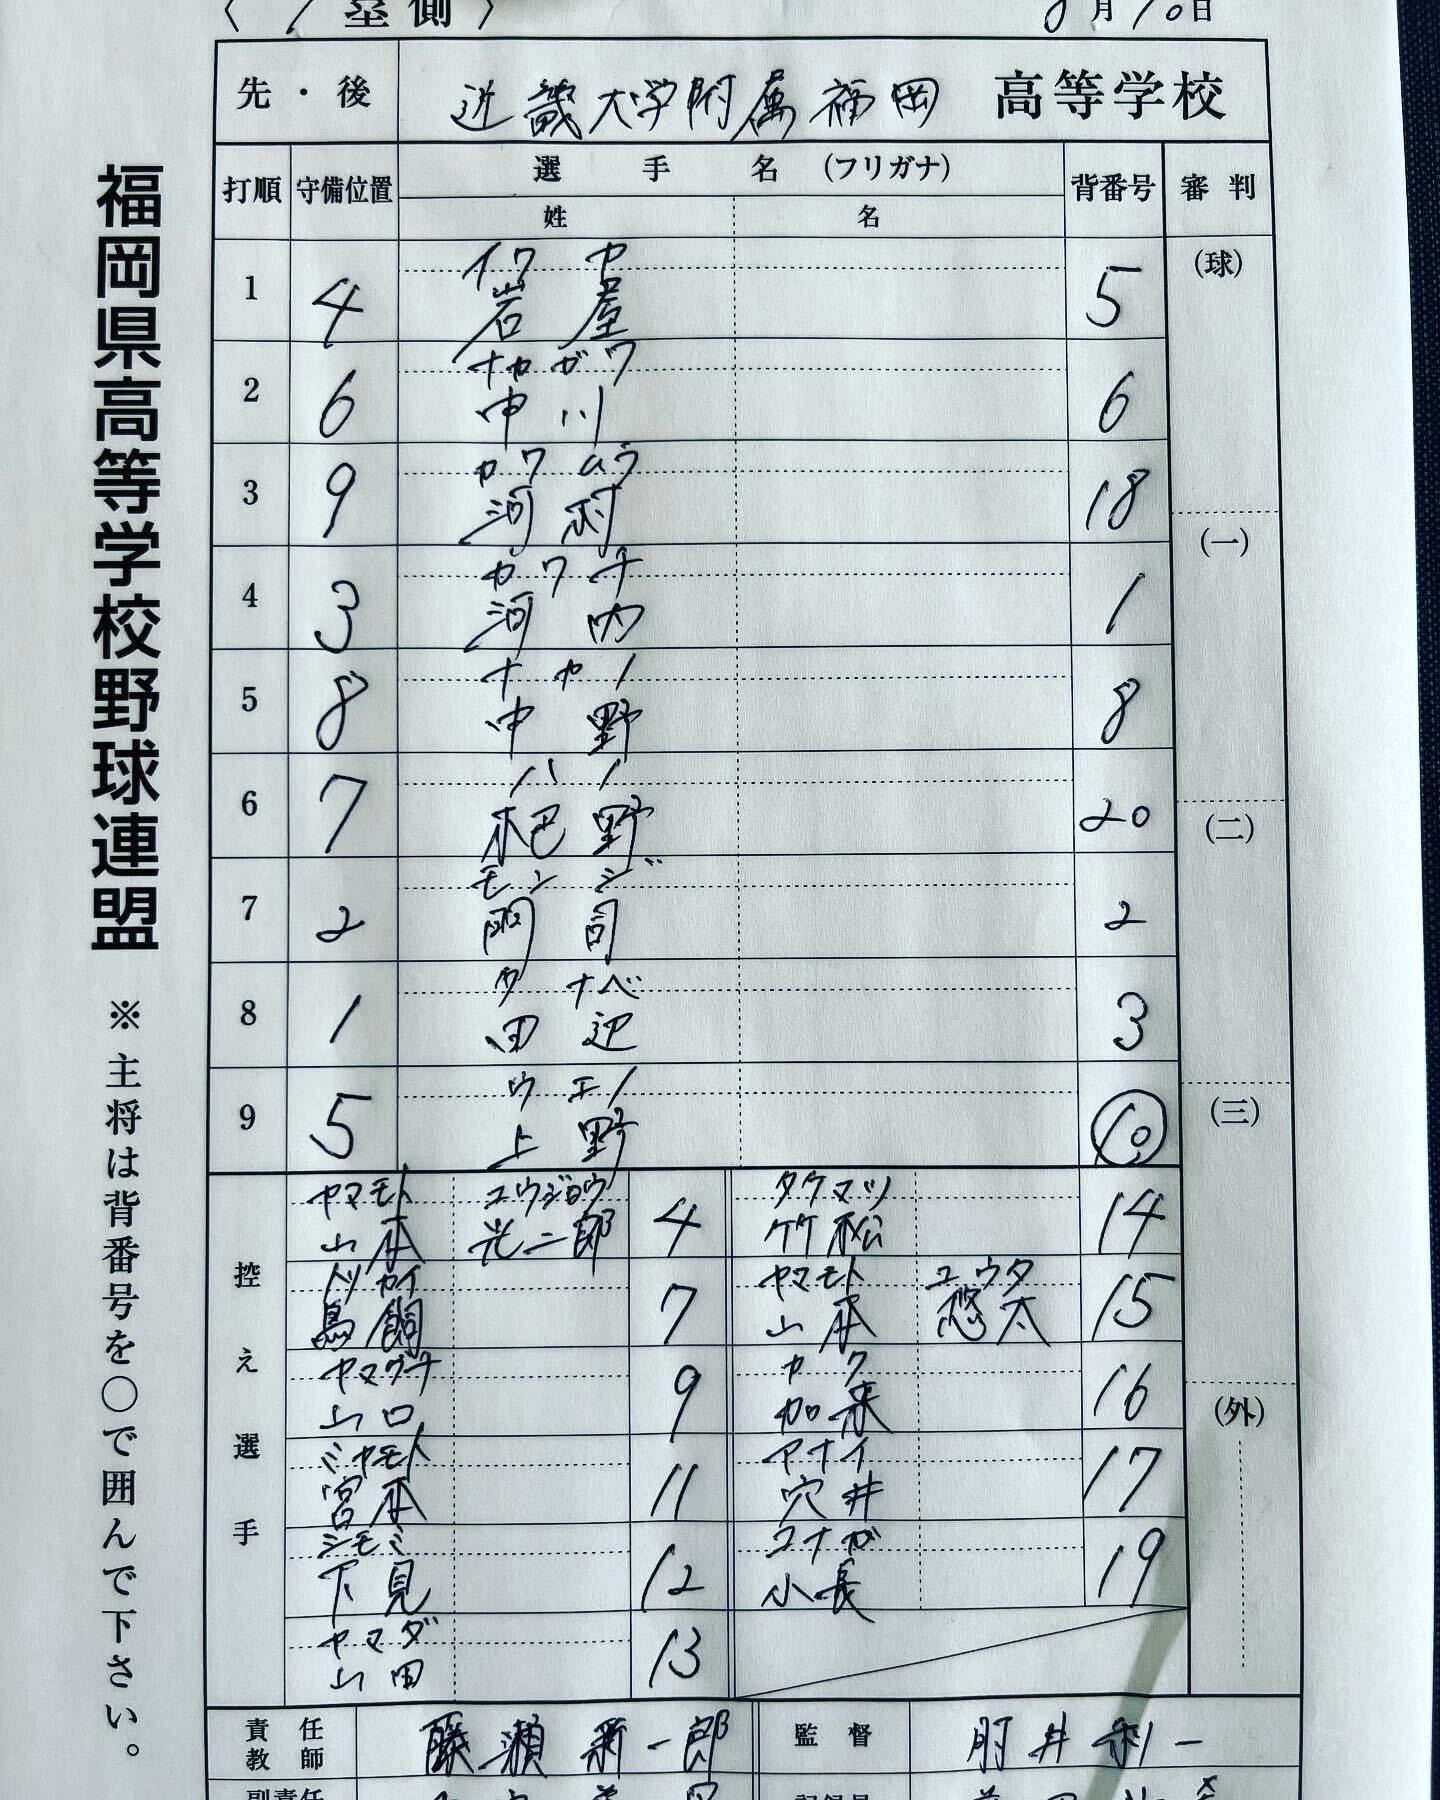 〈1塁側〉 8月10日
先・後 近畿大学附属福岡 高等学校
打順 守備位置 選手名(フリガナ) 背番号 審判
姓 名
イワヤ
1 4 岩屋 5 (球)
ナカガワ
2 6 中川 6
カワムラ
3 9 河村 18
(一)
カワチ
4 3 河内 1
ナカノ
5 8 中野 8
ハノ
6 7 杷野 20 (二)
モンジ
7 2 門司 2
タナベ
8 1 田辺 3
ウエノ
9 5 上野 10 (三)
控え選手
ヤマモト ユウジロウ タケマツ
山本 光二郎 4 竹松 14
トリカイ ヤマモト ユウタ
鳥飼 7 山本 悠太 15
ヤマグチ カク
山口 9 加来 16 (外)
ミヤモト アナイ
宮本 11 穴井 17
シモミ コナガ
下見 12 小長 19
ヤマダ
山田 13
責任教師 藤瀬新一郎 監督 肘井利一
副責任
福岡県高等学校野球連盟 ※主将は背番号を○で囲んで下さい。